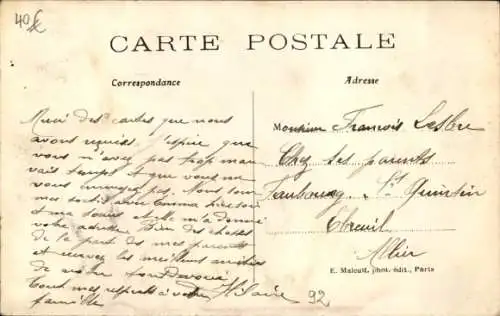 40
CARTE POSTALE
Correspondance
Adresse
Merci des cartes que nous
avons reçues. J'espère que
vous n'avez pas trop mau
vais temps et que vous ne
vous ennuyez pas. Nous som
mes avec Emma
et ma et elle m'a donné
votre adresse Bien des choses
de la part des mes parents
et recevez les meilleurs amitiés
de votre
Tout mes respects à votre
famille
Hilaire 92
Monsieur François Lesbre
Chez ses parents
Faubourg St Quintin
Ebreuil
Allier
E. Malcuit, phot. édit., Paris